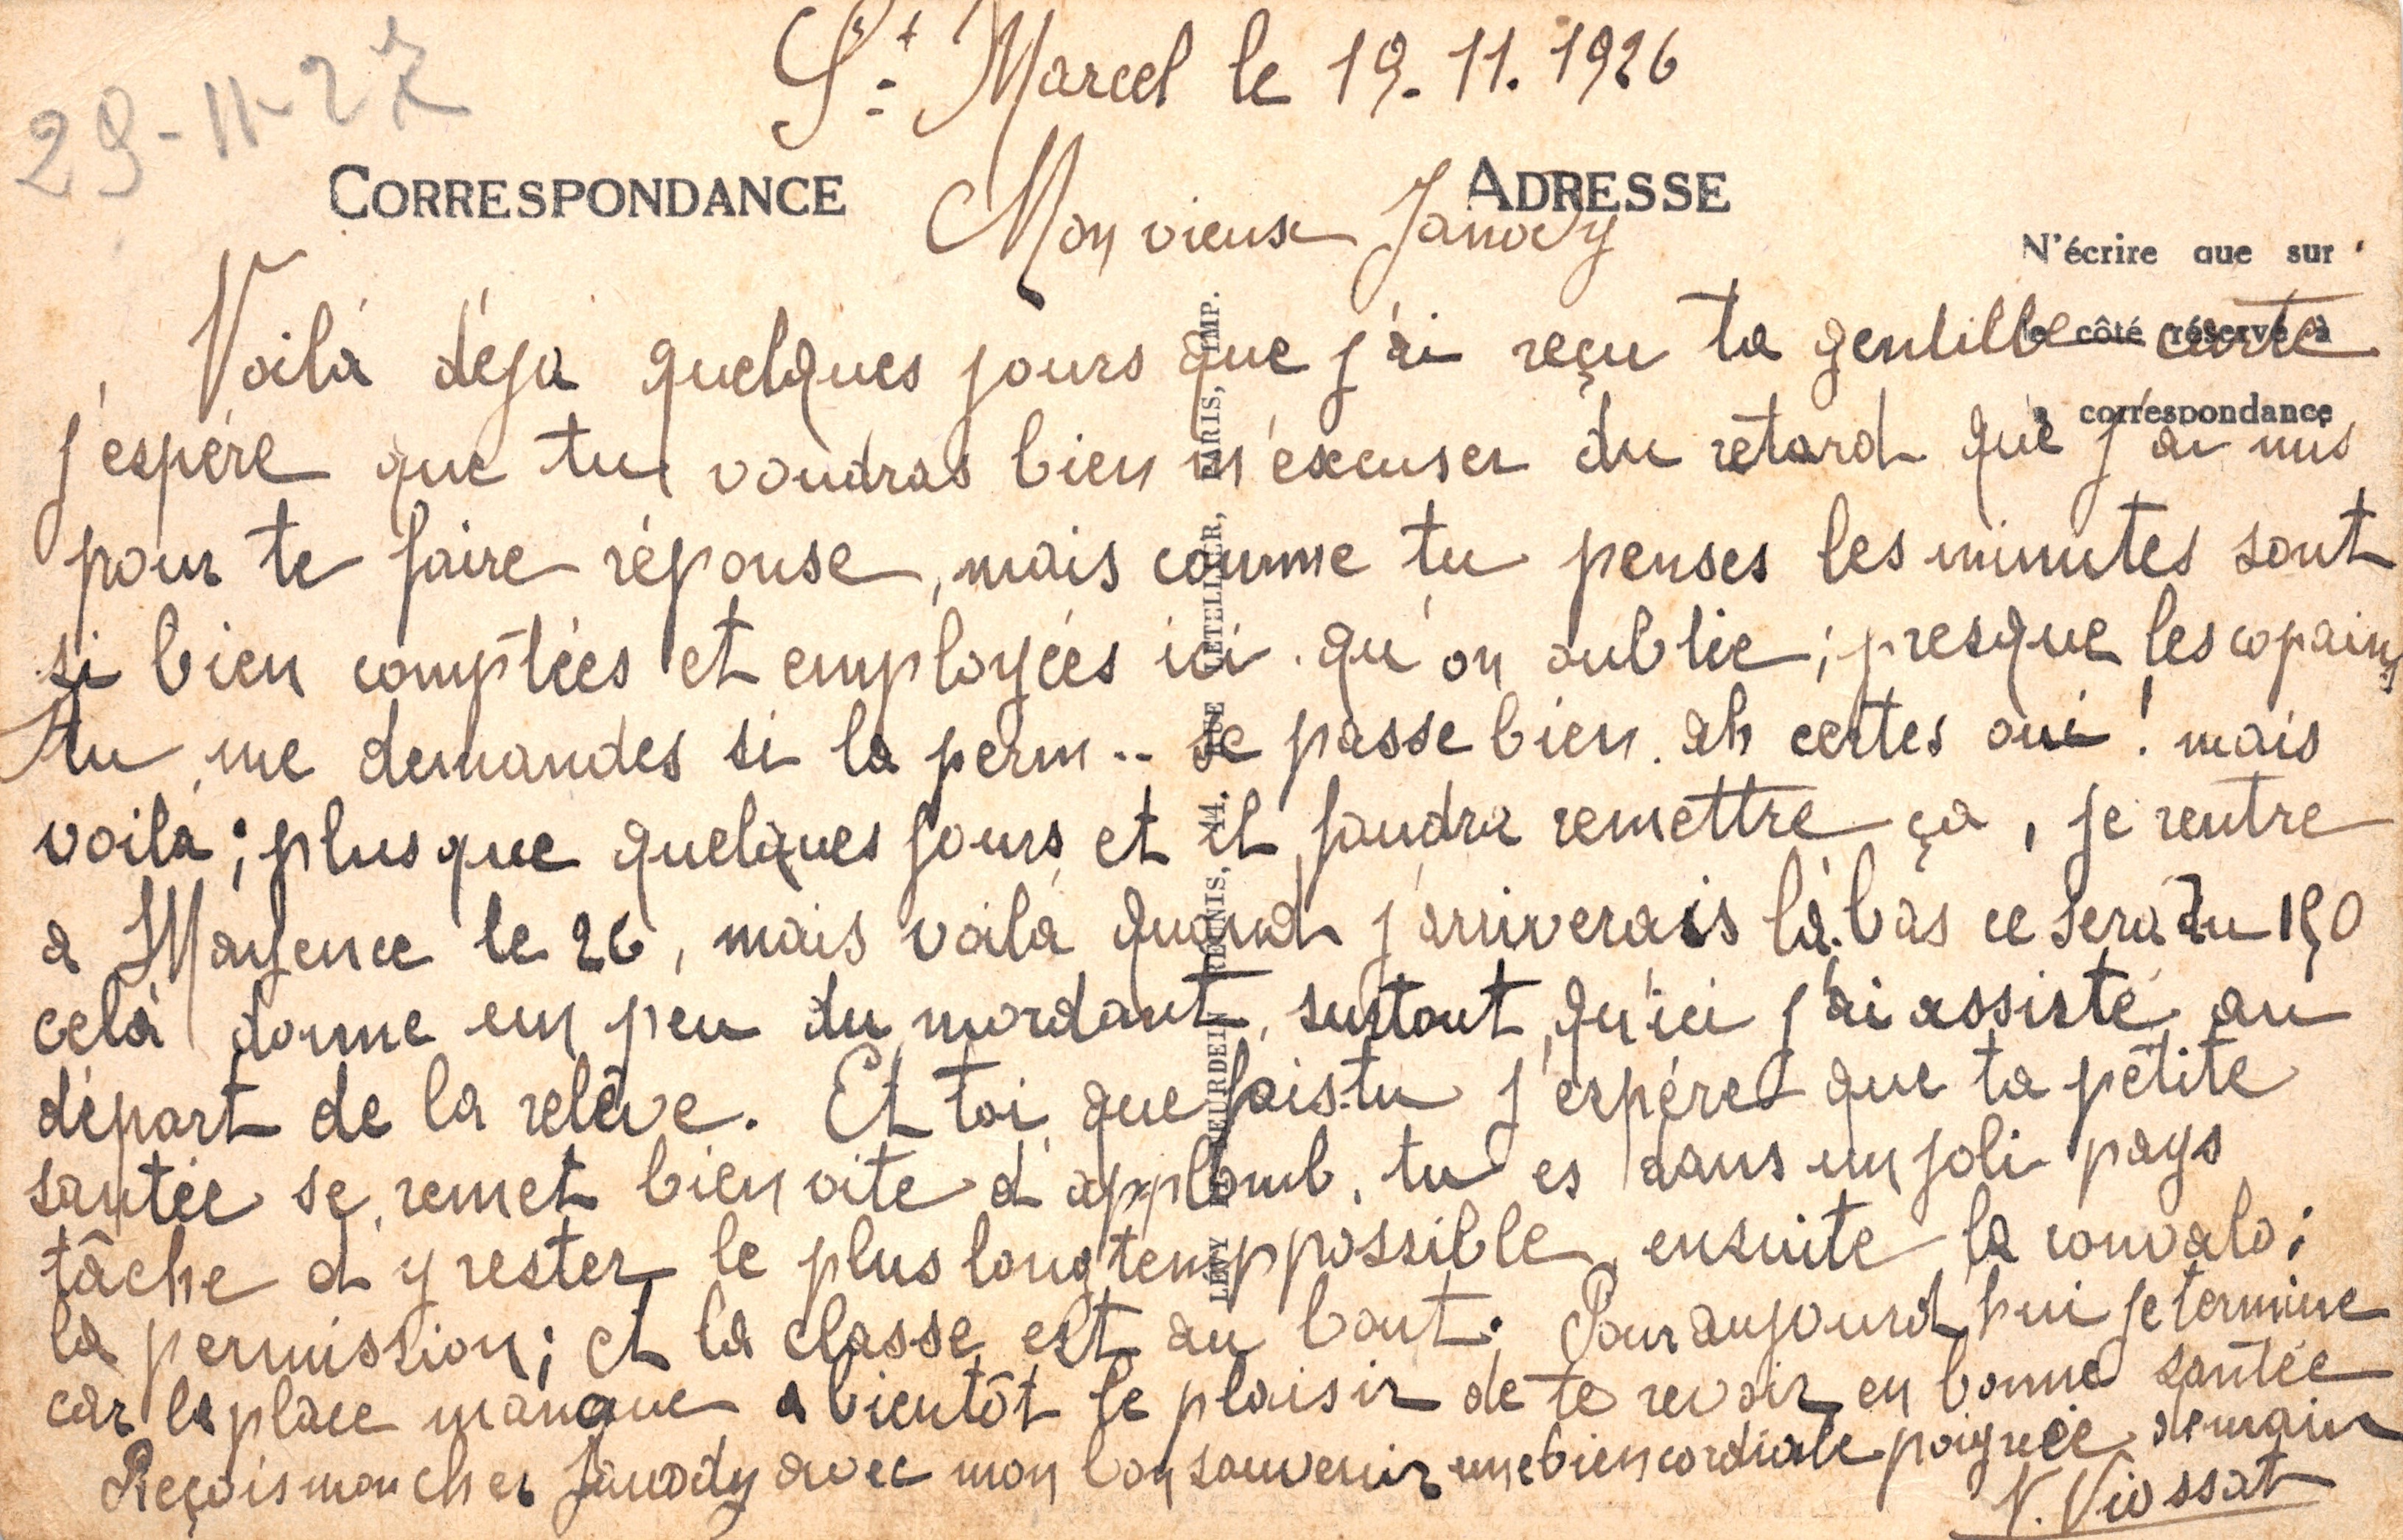 29-11-27
St Marcel le 19-11.1926
CORRESPONDANCE
ADRESSE
Mon vieux Janody
N'écrire que sur
le côté réservé à
la correspondance
Voilà déja quelques jours que j'ai reçu ta gentille carte
j'espére que tu voudras bien m'excuser du retard que j'ai mis
pour te faire réponse, mais comme tu penses les minutes sont
si bien comptées et employées ici qu'on oublie; presque les copains
tu me demandes si la perm.. se passe bien. ah certes oui! mais
voilà; plus que quelques jours et il faudra remettre ça, je rentre
a Mayence le 26, mais voilà quand j'arriverais là.bas ce sera du 150
celà donne un peu du mordant, surtout qu'ici j'ai assisté au
départ de la relève. Et toi que fais-tu j'espére que ta petite
santée se remet bien vite d'applomb, tu es dans un joli pays
tâche d'y rester le plus longtemp possible, ensuite la convalo;
la permission; et la classe est au bout. Pour aujourd'hui je termine
car la place manque a bientôt le plaisir de te revoir en bonne santée
Reçois mon cher Janody avec mon bon souvenir une bien cordiale poignée de main
V. Viossat
LÉVY ET NEURDEIN RÉUNIS, 44, RUE LETELLIER, PARIS, IMP.